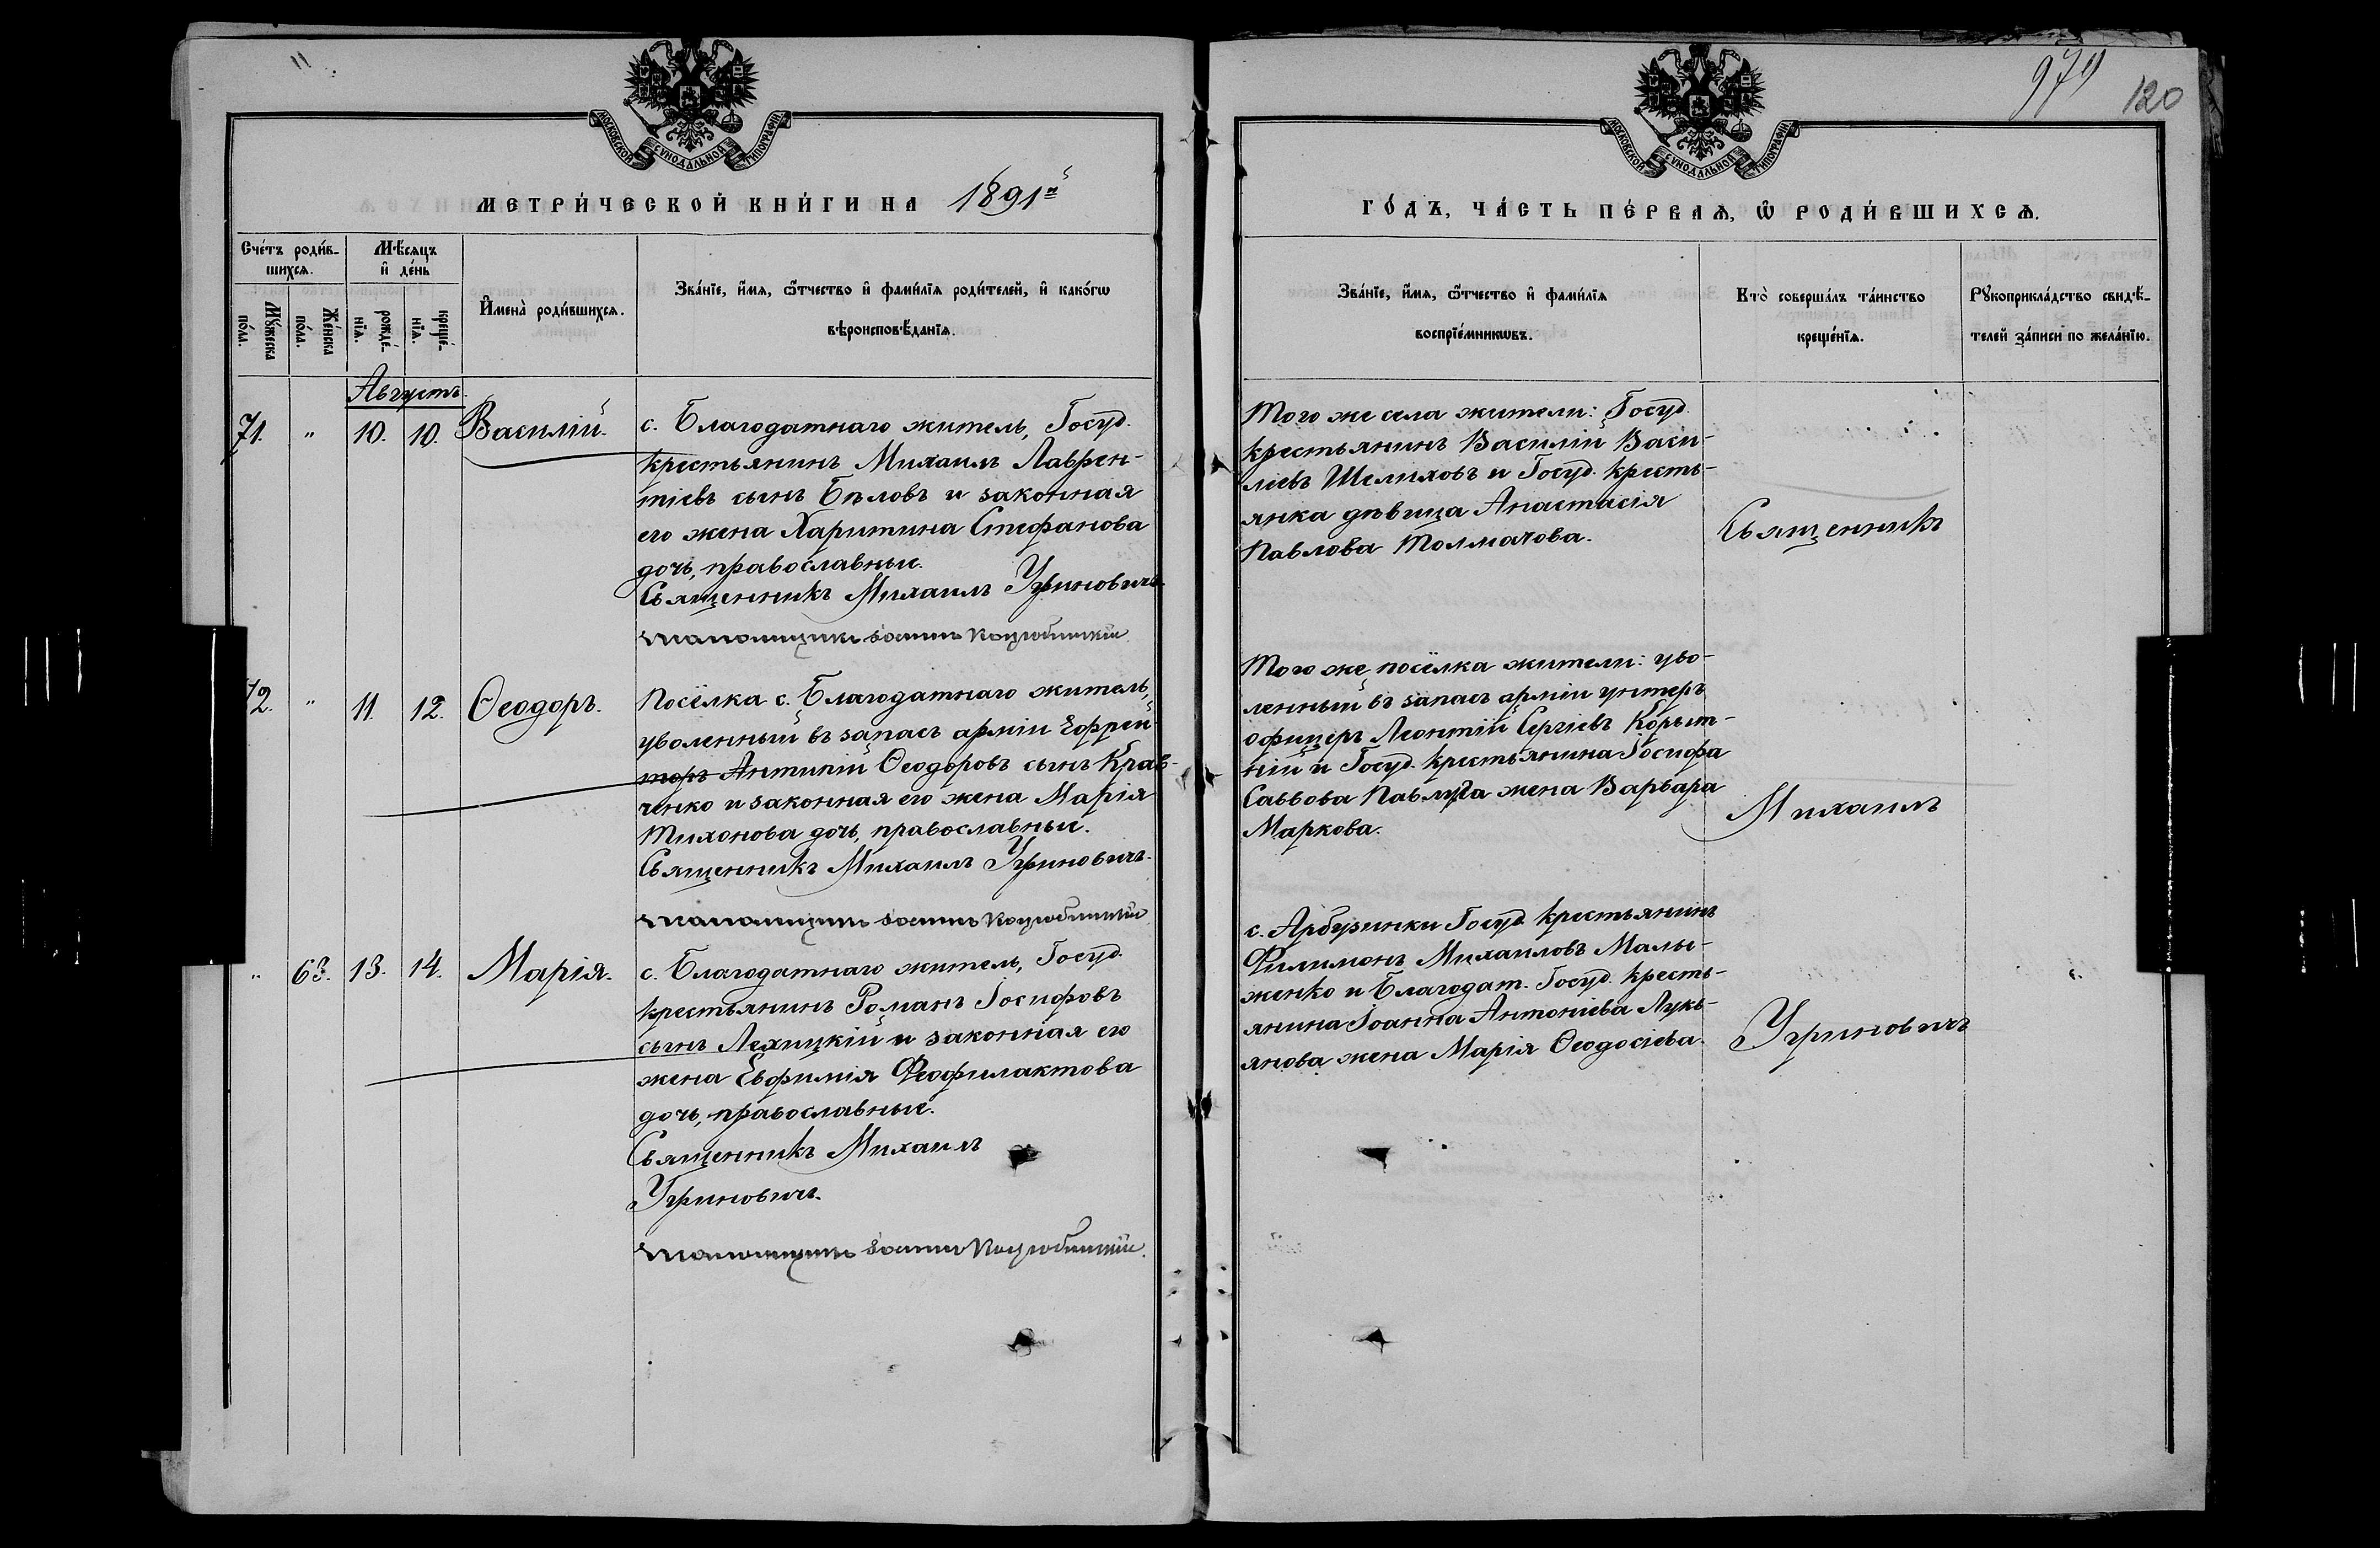 979
120
МОСКОВСКОЙ СѴНОДАЛЬНОЙ ТИПОГРАФІИ
МОСКОВСКОЙ СѴНОДАЛЬНОЙ ТИПОГРАФІИ
МЕТРИ́ЧЕСКОЙ КНИ́ГИ НА 1891й
Сче́тъ роди́в-
шихсѧ.
Мѣ́сѧцъ
и҆ де́нь
Мꙋ́жеска
по́ла.
Же́нска
по́ла.
рожде́-
нїѧ.
креще́-
нїѧ.
И҆мена̀ роди́вшихсѧ.
Зва́нїе, и҆́мѧ, ѻ҆́тчество и҆ фами́лїѧ роди́телей, и҆ како́гѡ
вѣроисповѣ́данїѧ.
Августъ.
71.
"
10.
10.
Василій.
с. Благодатнаго житель, Госуд.
крестьянинъ Михаилъ Лаврен-
тіевъ сынъ Бѣловъ и законная
его жена Харитина Стефанова
дочь, православные.
Священникъ Михаилъ Угриновичъ
Псаломщикъ Іоаннъ Коцюбинскій.
72.
"
11.
12.
Ѳеодоръ.
Посёлка с. Благодатнаго житель,
уволенный въ запасъ арміи Ефрей-
торъ Антипій Ѳеодоровъ сынъ Крав-
ченко и законная его жена Марія
Тихонова дочь, православные.
Священникъ Михаилъ Угриновичъ.
Псаломщикъ Іоаннъ Коцюбинскій
"
63.
13.
14.
Марія.
с. Благодатнаго житель, Госуд.
крестьянинъ Романъ Іосифовъ
сынъ Лехицкій и законная его
жена Евфимія Феофилактова
дочь, православные.
Священникъ Михаилъ
Угриновичъ.
Псаломщикъ Іоаннъ Коцюбинскій.
ГО́ДЪ, ЧА́СТЬ ПЕ́РВАѦ, Ѡ҆ РОДИ́ВШИХСѦ.
Зва́нїе, и҆́мѧ, ѻ҆́тчество и҆ фами́лїѧ
воспрїе́мникѡвъ.
Кто̀ соверша́лъ та́инство
креще́нїѧ.
Рꙋкоприкла́дство свидѣ́-
телей за́писи по жела́нїю.
Того же села жители: Госуд.
крестьянинъ Василій Васи-
ліевъ Шелиховъ и Госуд. кресть-
янка дѣвица Анастасія
Павлова Толмачова.
Того же посёлка жители: уво-
ленный въ запасъ арміи унтеръ
офицеръ Леонтій Сергіевъ Корыт-
ній и Госуд. крестьянина Іосифа
Саввова Павлуда жена Варвара
Маркова.
с. Арбузинки Госуд. крестьянинъ
Филимонъ Михаиловъ Малы-
женко и Благодат. Госуд. кресть-
янина Іоанна Антоніева Лукь-
янова жена Марія Ѳеодосіева.
Священникъ
Михаилъ
Угриновичъ